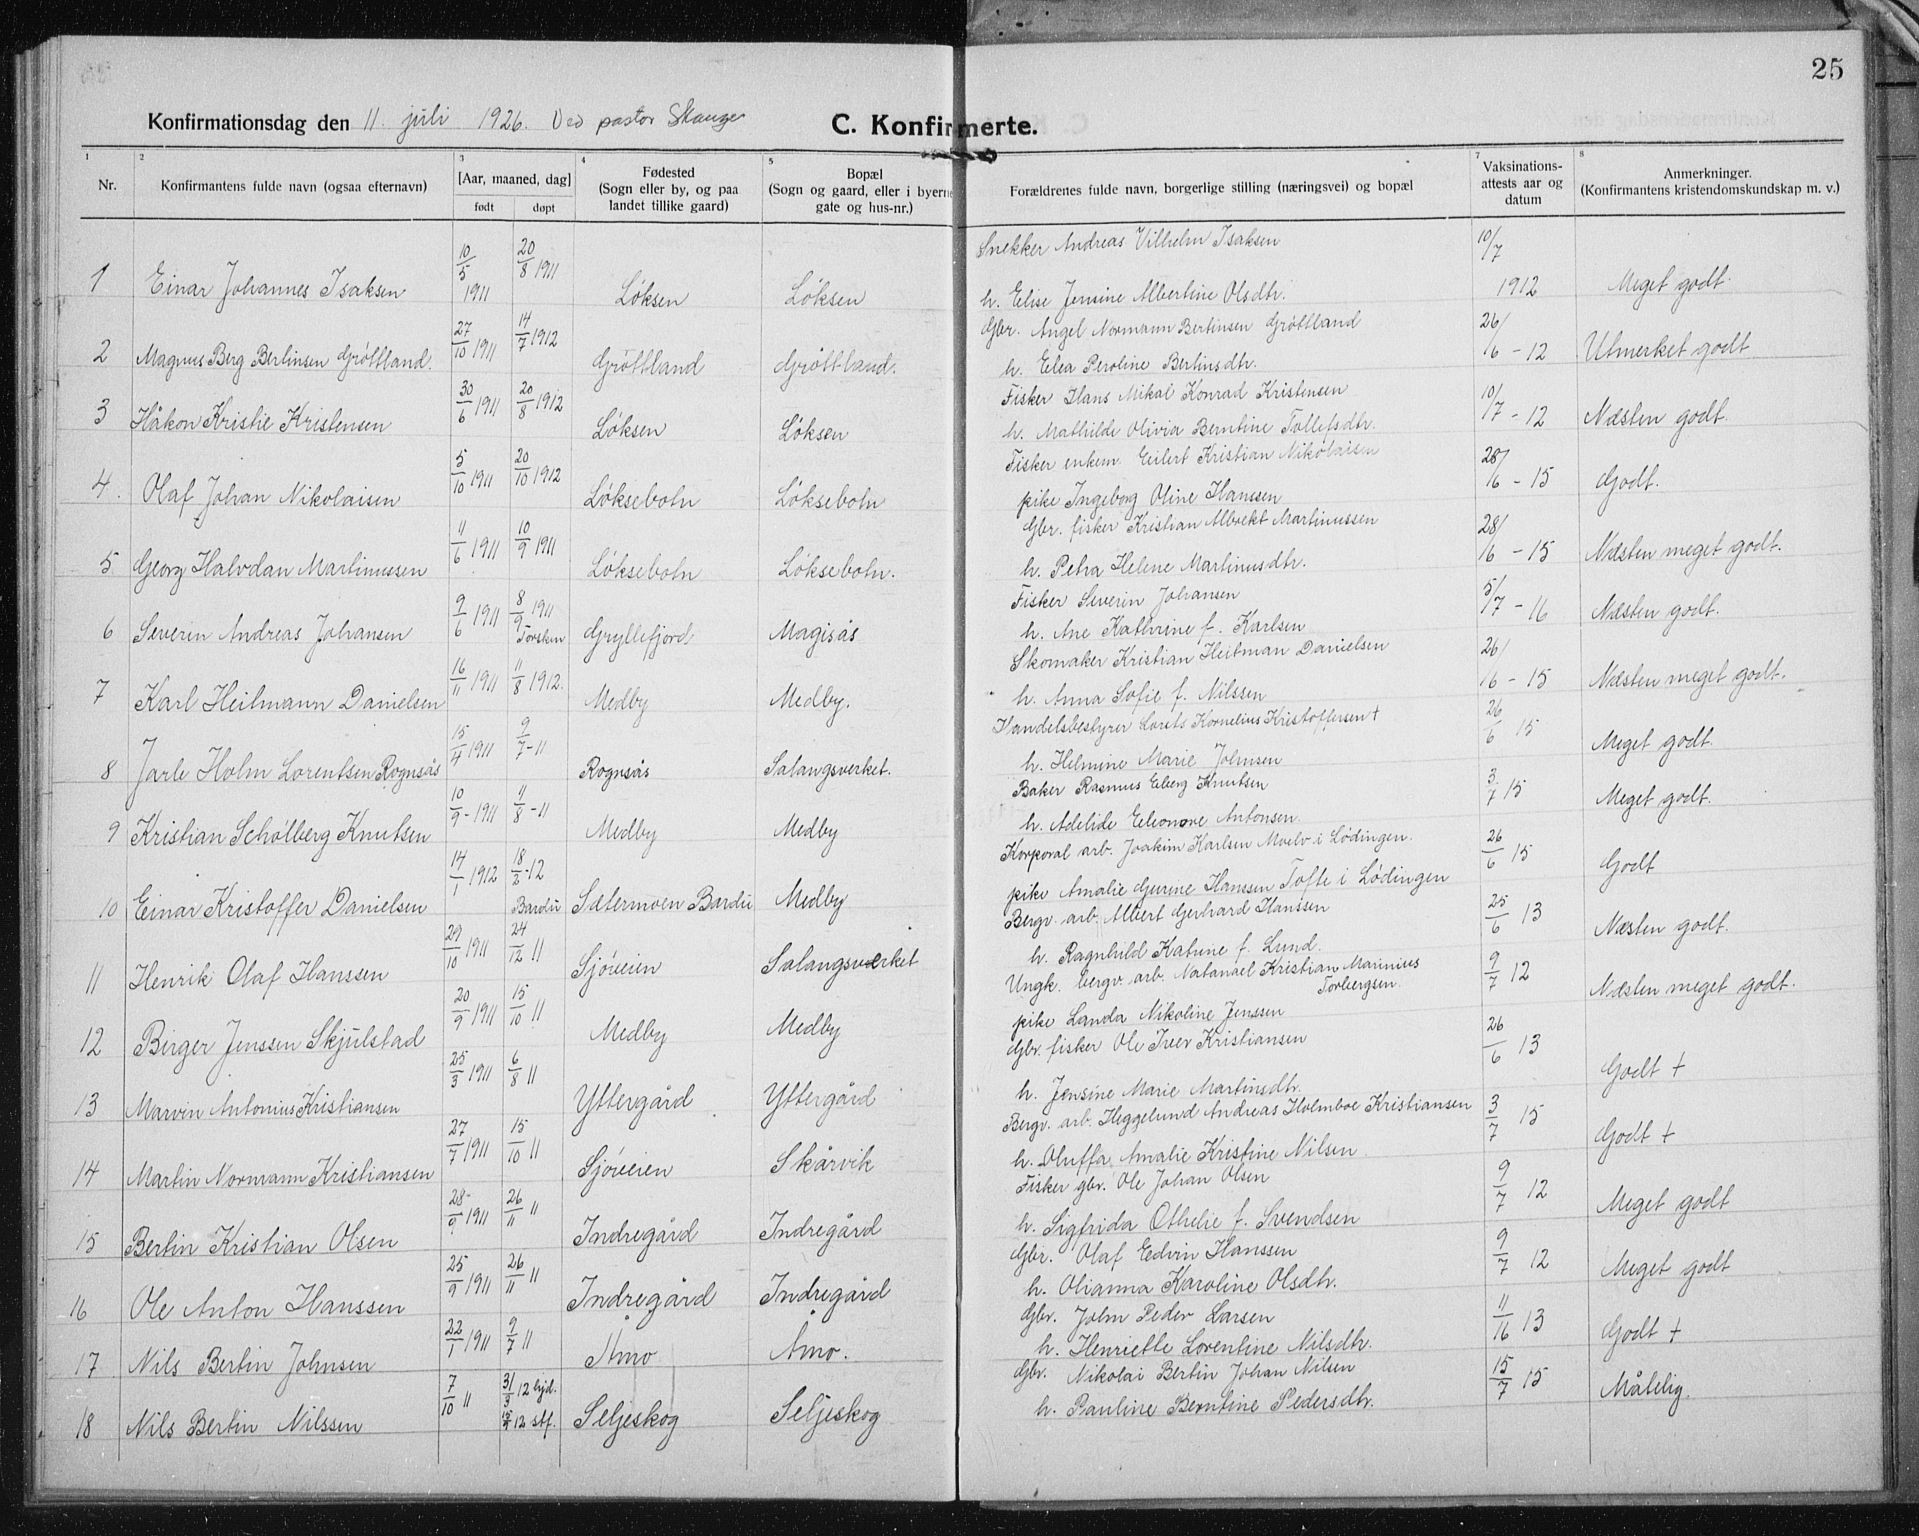 25
Konfirmationsdag den 11. juli 1926. Ved pastor Skauge
C. Konfirmerte.
1 2 3 4 5 7 8
Nr.
Konfirmantens fulde navn (ogsaa efternavn)
[Aar, maaned, dag]
født døpt
Fødested
(Sogn eller by, og paa
landet tillike gaard)
Bopæl
(Sogn og gaard, eller i byerne
gate og hus-nr.)
Forældrenes fulde navn, borgerlige stilling (næringsvei) og bopæl
Vaksinations-
attests aar og
datum
Anmerkninger.
(Konfirmantens kristendomskundskap m. v.)
1 Einar Johannes Isaksen 10/5 1911 20/8 1911 Løksen Løksen Snekker Andreas Vilhelm Isaksen 10/7 1912 Meget godt.
h. Elise Jensine Albertine Olsdtr.
2 Magnus Berg Bertinsen Grøttland. 27/10 1911 14/7 1912 Grøttland Grøttland. Gbr. Angel Normann Bertinsen Grøttland 26/6 - 12 Utmerket godt
h. Elea Peroline Bertinsdtr.
3 Håkon Kristie Kristensen 30/6 1911 20/8 1912 Løksen Løksen Fisker Hans Mikal Konrad Kristensen 10/7 - 12 Næsten godt.
h. Mathilde Olivia Berntine Tollefsdtr.
4. Olaf Johan Nikolaisen 5/10 1911 20/10 1912 Løksebotn Løksebotn Fisker enkem. Eilert Kristian Nikolaisen 28/6 - 15 Godt.
pike Ingeborg Oline Hanssen
5. Georg Halvdan Martinussen 11/6 1911 10/9 1911 Løksebotn Løksebotn. Gbr. fisker Kristian Albrekt Martinussen 28/6 - 15 Næsten meget godt.
h. Petra Helene Martinusdtr.
6 Severin Andreas Johansen 9/6 1911 8/9 1911 Torsken Gryllefjord Magisås Fisker Severin Johansen 5/7 - 16 Næsten godt.
h. Ane Kathrine f. Karlsen
7 Karl Heitmann Danielsen 16/11 1911 11/8 1912. Medby Medby. Skomaker Kristian Heitman Danielsen 26/6 - 15 Næsten meget godt.
h. Anna Sofie f. Nilssen
8 Jarle Holm Lorentsen Rognsås 15/4 1911 9/7 - 11 Rognsås Salangsverket. Handelsbestyrer Lorents Kornelius Kristoffersen + 26/6 15 Meget godt.
h. Helmine Marie Johnsen
9 Kristian Schølberg Knutsen 10/9 - 1911 11/8 - 11 Medby Medby Baker Rasmus Eberg Knutsen 3/7 15 Meget godt.
h. Adelide Eleonore Antonsen.
10 Einar Kristoffer Danielsen 14/1 1912 18/2 - 12 Bardu Sætermoen Bardu Medby Korporal arb. Joakim Karlsen Moelv i Lødingen. 26/6 15 Godt
pike Amalie Gurine Hanssen Tofte i Lødingen
11 Henrik Olaf Hanssen 29/10 1911 24/12 11 Sjøveien Salangsverket Bergv. arb. Albert Gerhard Hanssen 25/6 13 Næsten godt.
h. Ragnhild Katrine f. Lund.
12 Birger Jenssen Skjulstad 20/9 1911 15/10 11 Medby Medby Ungk. bergv. arb. Natanael Kristian Marinius Torbergsen. 9/7 12 Næsten meget godt.
pike Landa Nikoline Jenssen
13 Marvin Antonius Kristiansen 25/3 1911 6/8 11 Yttergård Yttergård Gbr. fisker Ole Iver Kristiansen 26/6 13 Godt +
h. Jensine Marie Martinsdtr.
14 Martin Normann Kristiansen 27/7 1911 15/10 11 Sjøveien Skårvik Bergv. arb. Heggelund Andreas Holmboe Kristiansen 3/7 15 Godt +
h. Oluffa Amalie Kristine Nilsen.
15 Bertin Kristian Olsen 28/9 1911 26/11 11 Indregård Indregård Fisker gbr. Ole Johan Olsen 9/7 12 Meget godt
h. Sigfrida Othelie f. Svendsen
16 Ole Anton Hanssen 25/9 1911 26/11 11 Indregård Indregård Gbr. Olaf Edvin Hanssen 9/7 12 Meget godt
h. Olianna Karoline Olsdtr.
17 Nils Bertin Johnsen 22/1 1911 9/7 11 Amo Amo. Gbr. John Peder Larsen 11/16 13 Godt +
h. Henriette Lorentine Nilsdtr.
18 Nils Bertin Nilssen 7/10 11 31/3 12 hjd. 12 stf. Seljeskog Seljeskog Gbr. Nikolai Bertin Johan Nilsen 15/7 15 Måtelig.
h. Pauline Berntine Pedersdtr.